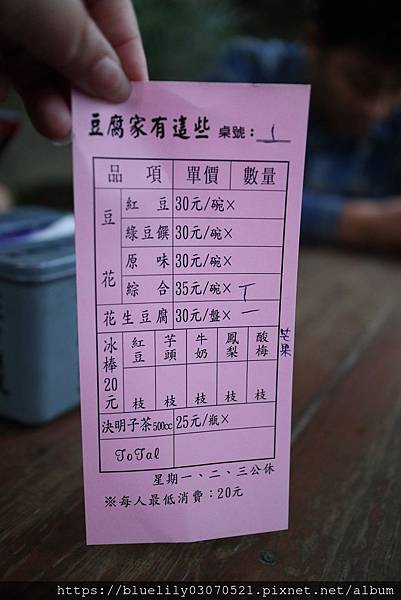 豆腐家有這些 桌號:1
品項 單價 數量
豆花 紅豆 30元/碗×
綠豆饌 30元/碗×
原味 30元/碗×
綜合 35元/碗× 丅
花生豆腐 30元/盤× 一
冰棒20元 紅豆 芋頭 牛奶 鳳梨 酸梅 芒果
枝 枝 枝 枝 枝
決明子茶500cc 25元/瓶×
ToTal
星期一、二、三公休
※每人最低消費:20元
https://bluelily03070521.pixnet.net/album